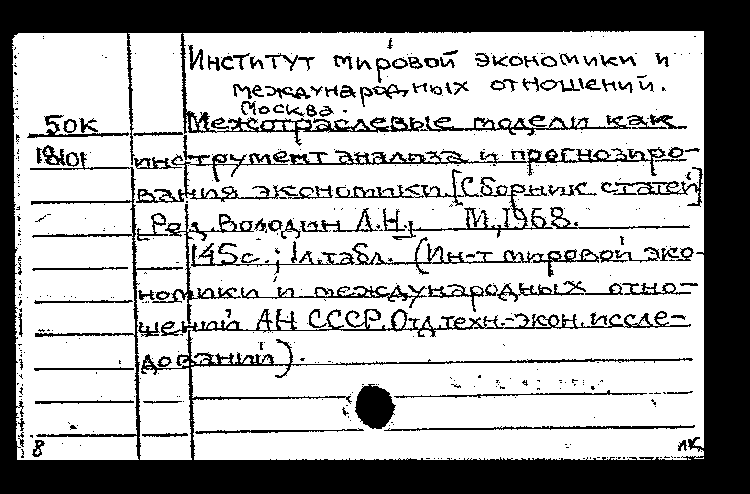 Институт мировой экономики и
международных отношений.
Москва.
50к Межотраслевые модели как
инструмент анализа и прогнозиро-
вания экономики. [Сборник статей]
[Ред. Володин Л.Н.]. М., 1968.
145с.; 1л.табл. (Ин-т мировой эко-
номики и международных отно-
шений АН СССР. Отд.техн.-экон.иссле-
дований).
8